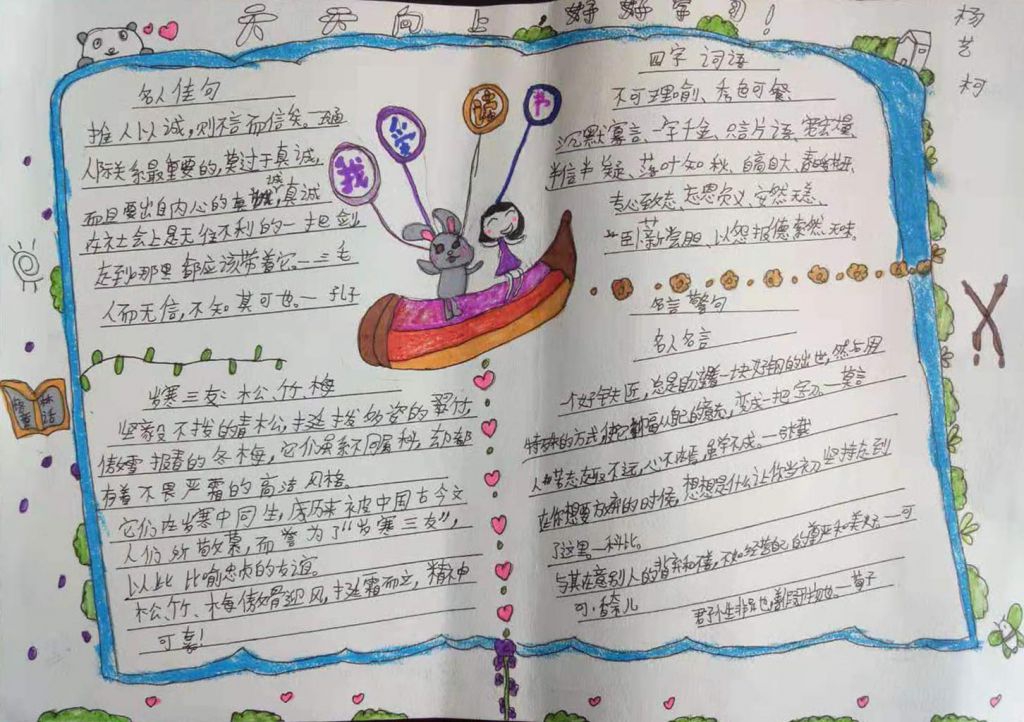 天天向上 好好学习!
杨艺柯
名人佳句
推人以诚,则不言而信矣。一王通
人际关系最重要的,莫过于真诚,
而且要出自内心的真诚,真诚
在社会上是无往不利的一把剑
走到那里都应该带着它。一三毛
人而无信,不知其可也。一孔子
我爱读书
四字词语
不可理喻、秀色可餐、
沉默寡言、一字千金、只言片语、宽宏大量、
半信半疑、落叶知秋、自高自大、
专心致志、忘恩负义、安然无恙、
卧薪尝胆、以怨报德、索然无味。
名言警句
名人名言
岁寒三友:松、竹、梅
坚毅不拔的青松,挺拔多姿的翠竹,
傲雪报春的冬梅,它们虽系不同属科,却都
有着不畏严霜的高洁风格。
它们在岁寒中同生,历来被中国古今文
人们所敬慕,而誉为了“岁寒三友”,
以此比喻忠贞的友谊。
松、竹、梅傲骨迎风,挺霜而立,精神
可嘉!
一个好铁匠,总是盼望着一块好钢的出世,然后用
特殊的方式,
一莫言
人若志趣不远,心不在焉,虽学不成。一张载
在你想要放弃的时候,想想是什么让你当初坚持走到
了这里。一科比。
与其在意别人的背弃和不善,不如经营自己的尊严和美好。一可
可·香奈儿
君子生非异也,善假于物也。一荀子